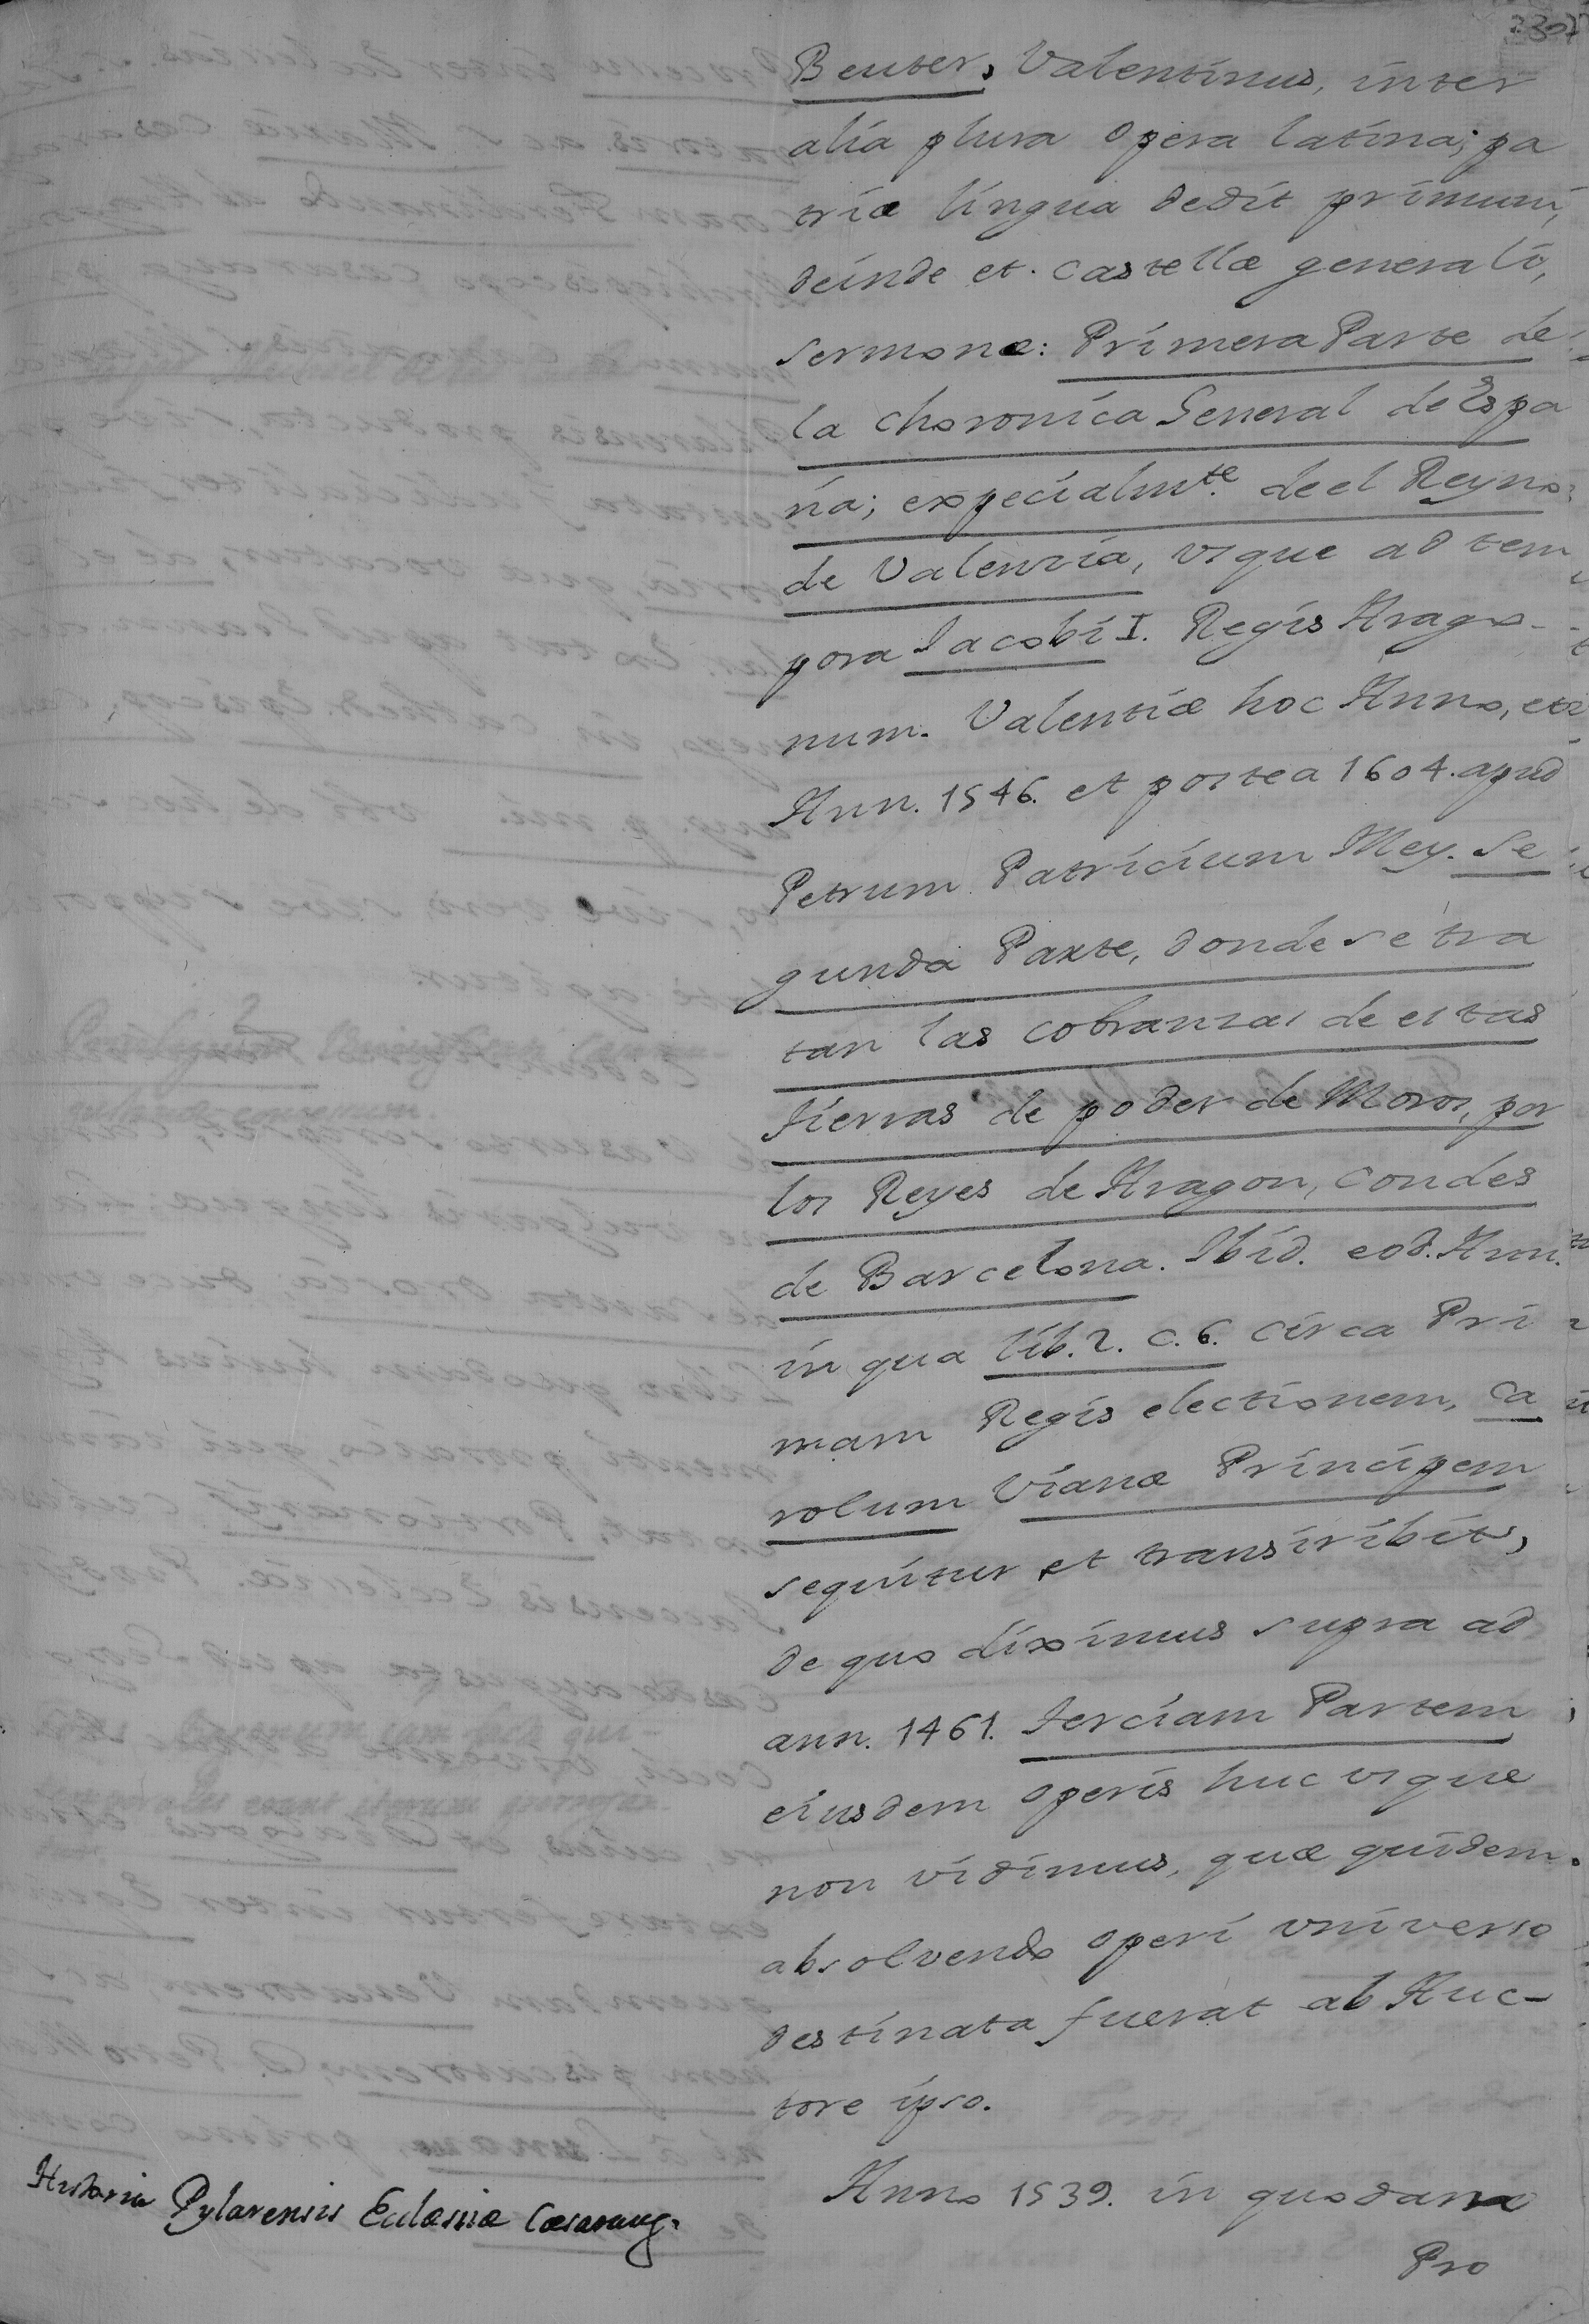 Beuter, Valentinus, inter
alia plura opera latina; pa
triæ lingua dedit primum,
deinde et. castellæ generali,
sermone: Primera Parte de
la choronica General de Espa
ña; expecialmte. de el Reyno
de Valenzia, vsque ad tem
pora Iacobi I. Regis Arago-
num. Valentiæ hoc Anno, et
Ann. 1546. et postea 1604. apud
Petrum Patricium Mey. Se
gunda Parte, donde se tra
tan las cobranzas de estas
tierras de poder de Moros, por
los Reyes de Aragon, condes
de Barcelona. Ibid. eod. Ann.
in qua lib. 2. c. 6. circa Pri
mam Regis electionem, Ca
rolum Vianæ Principem
sequitur et transcribit,
de quo diximus supra ad
ann. 1461. Terciam Partem
eiusdem operis huc vsque
non vidimus, quæ quidem
absolvendo operi vniverso
destinata fuerat ab Auc-
tore ipso.
Anno 1539. in quodam
Pro
Historia Pylarensis Eclesiæ Cæsaraug.